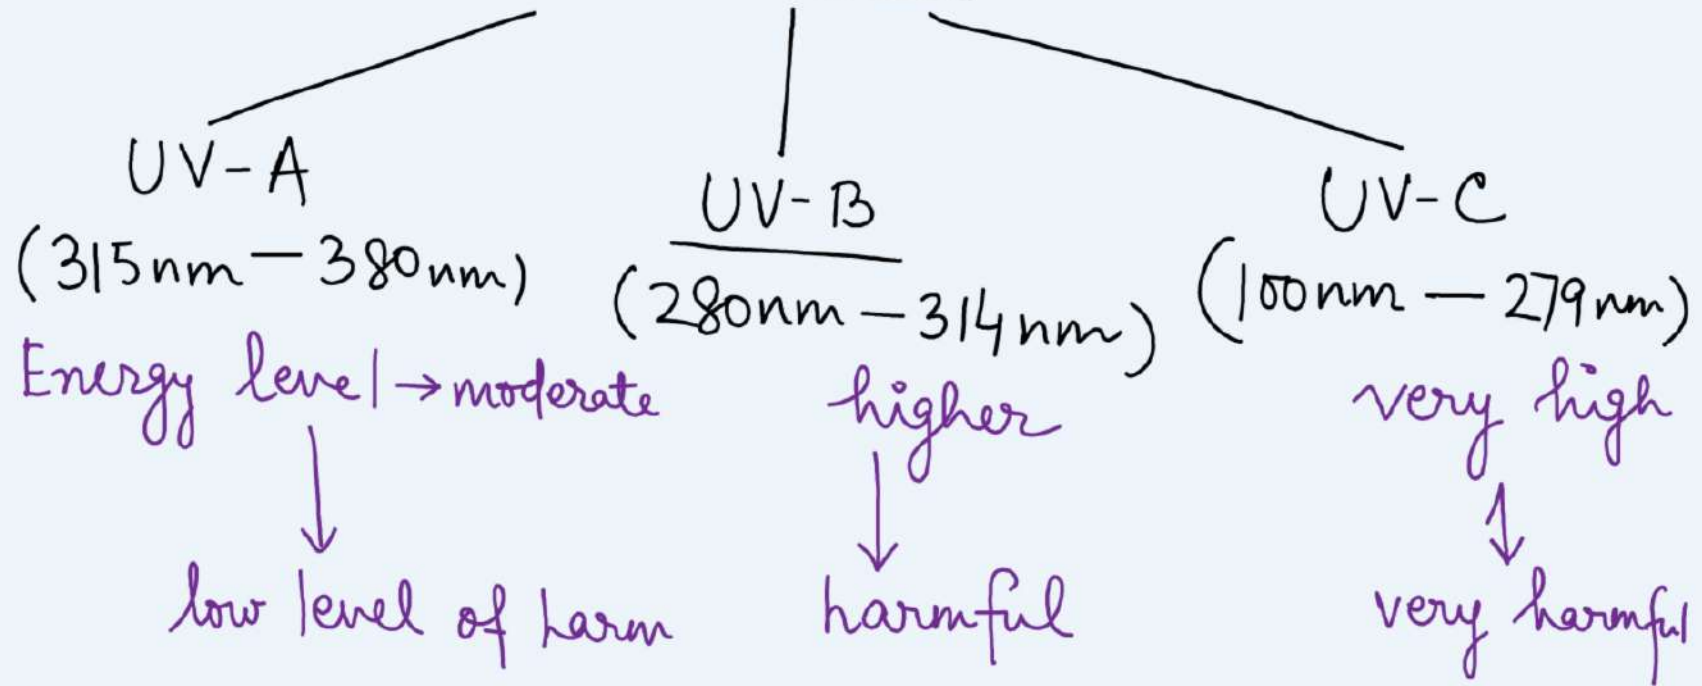 UV-A
(315nm – 380nm)
Energy level → moderate
low level of harm
UV-B
(280nm – 314nm)
higher
harmful
UV-C
(100nm – 279nm)
very high
very harmful